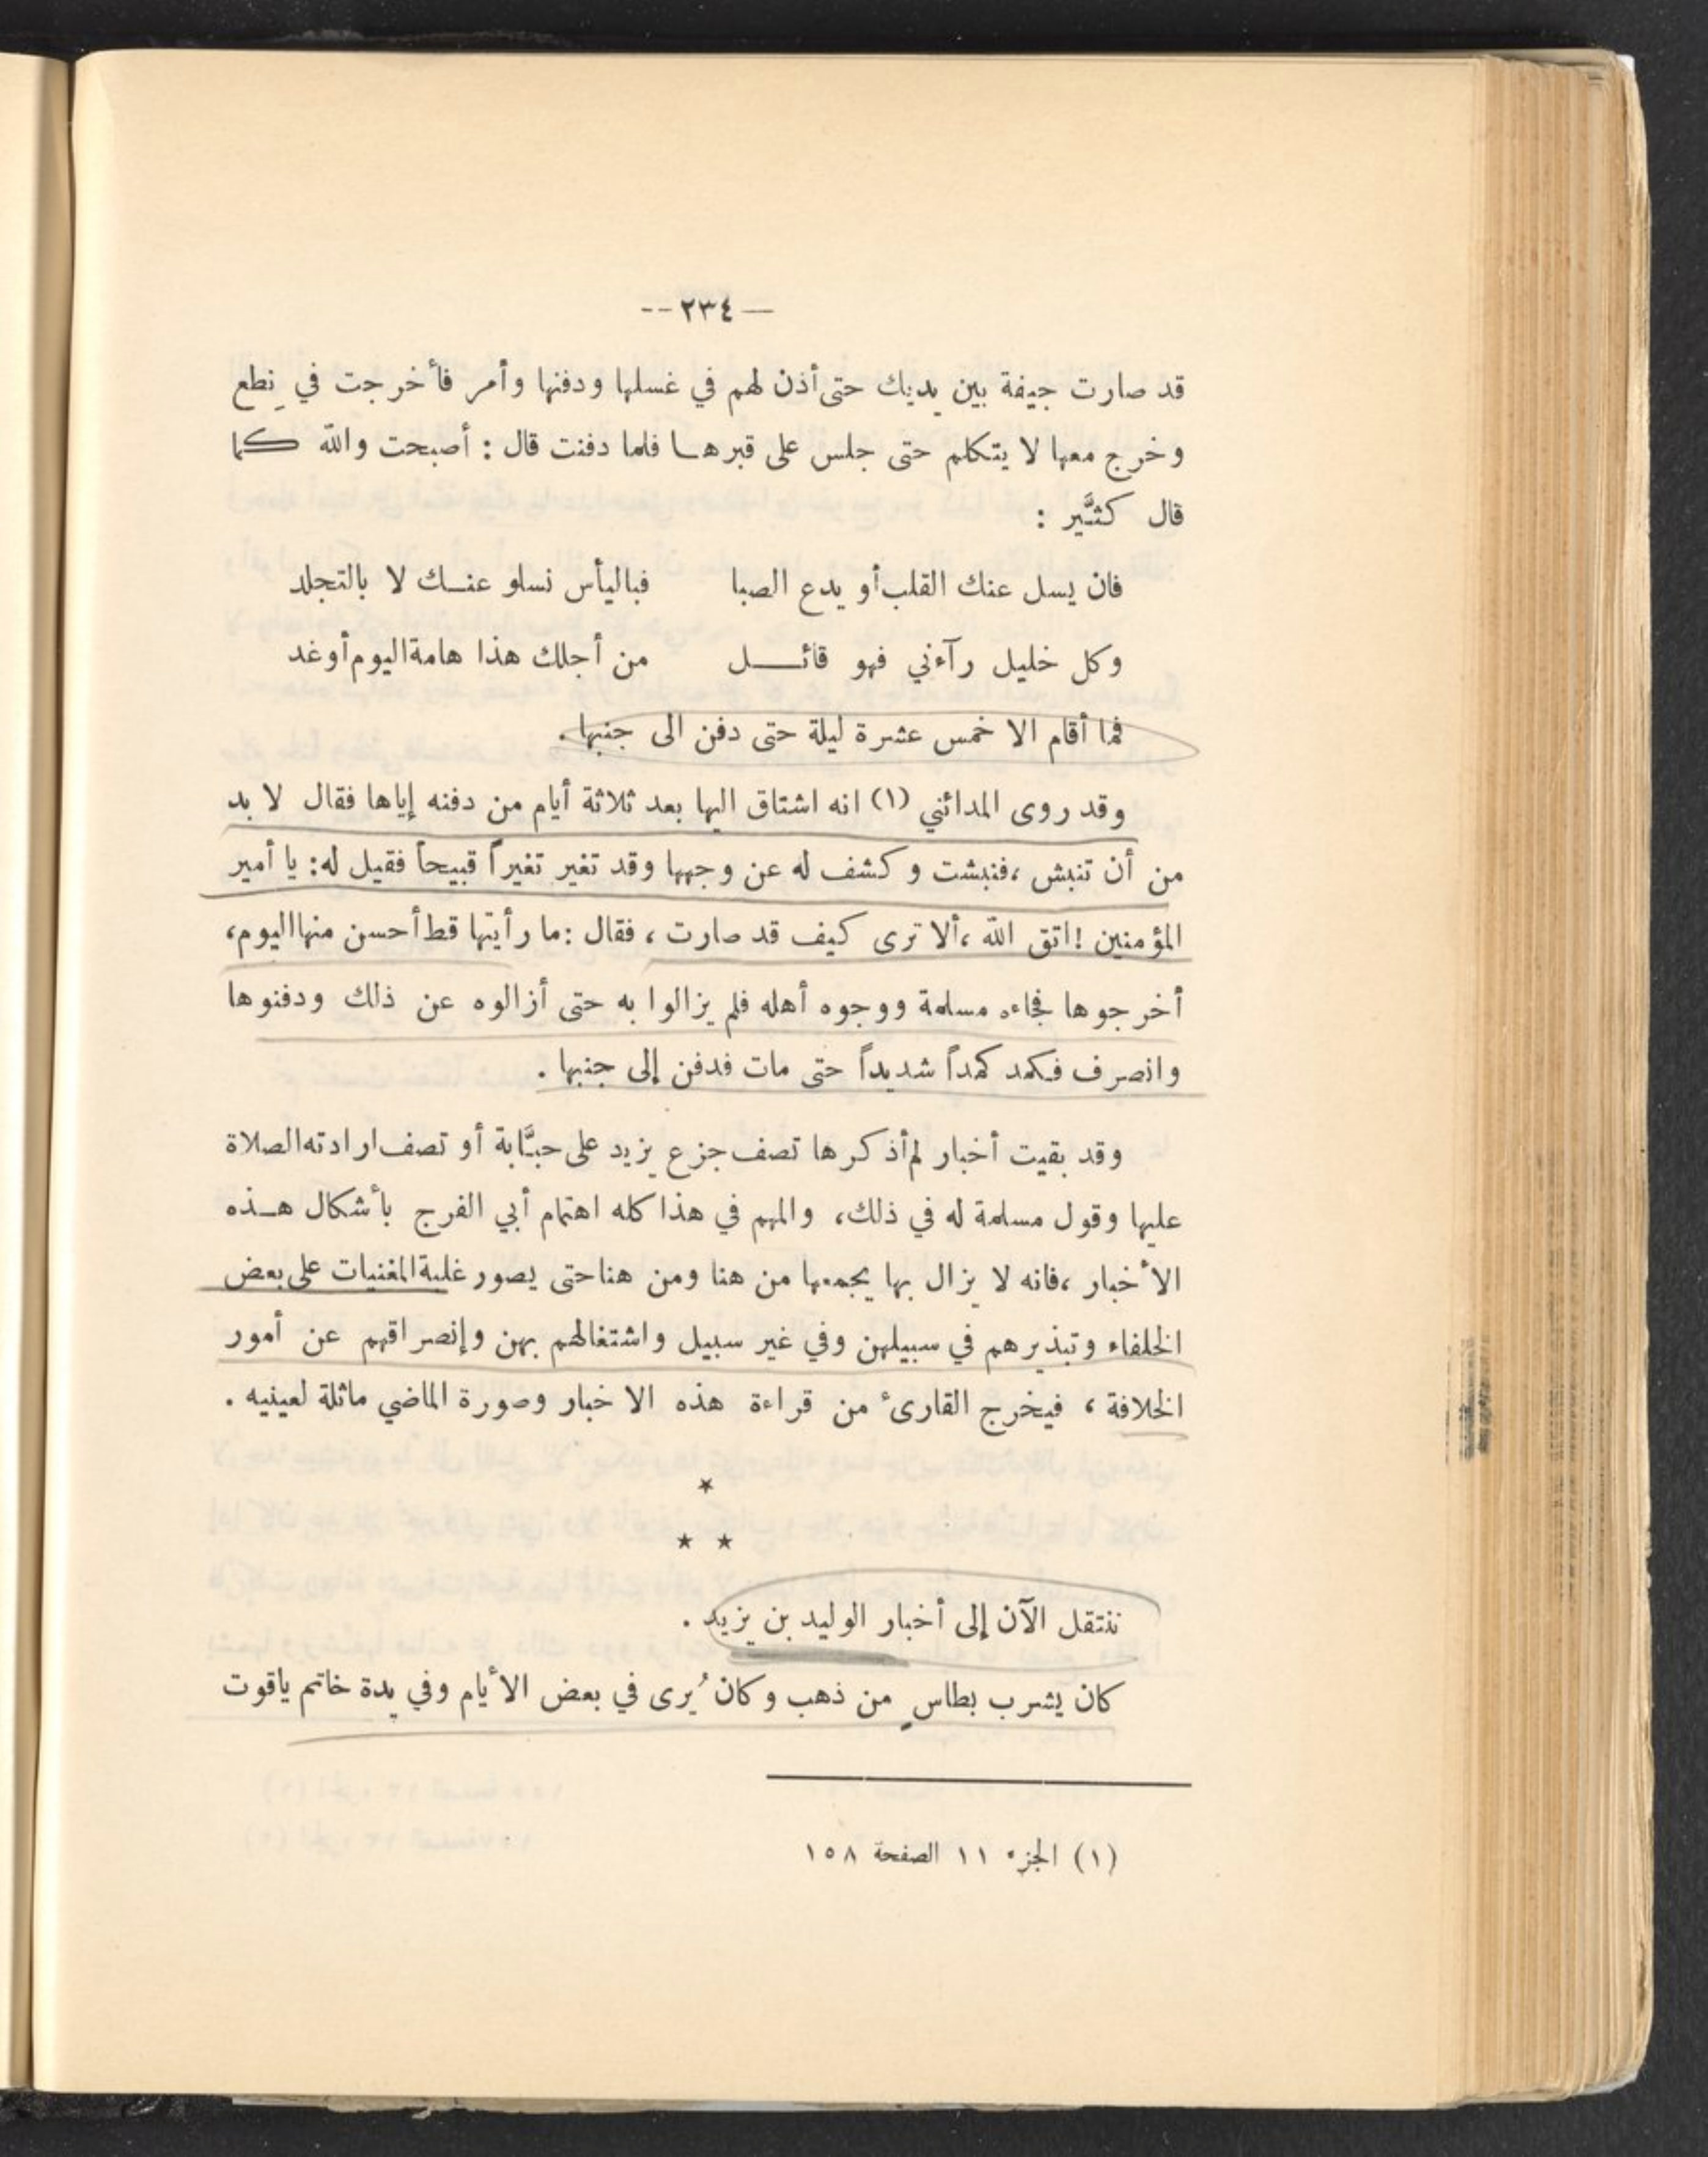 — ٢٣٤ --
قد صارت جيفة بين يديك حتى أذن لهم في غسلها ودفنها وأمر فأخرجت في نِطع
وخرج معها لا يتكلم حتى جلس على قبرهـا فلما دفنت قال : أصبحت والله كما
قال كثيَّر :
فان يسل عنك القلب أو يدع الصبا فباليأس نسلو عنـك لا بالتجلد
وكل خليل رآءني فهو قائـــل من أجلك هذا هامة اليوم أو غد
فما أقام الا خمس عشرة ليلة حتى دفن الى جنبها .
وقد روى المدائني (١) انه اشتاق اليها بعد ثلاثة أيام من دفنه إياها فقال لا بد
من أن تنبش ، فنبشت وكشف له عن وجهها وقد تغير تغيراً قبيحاً فقيل له : يا أمير
المؤمنين ! اتق الله ، ألا ترى كيف قد صارت ، فقال : ما رأيتها قط أحسن منها اليوم ،
أخرجوها فجاءه مسلمة ووجوه أهله فلم يزالوا به حتى أزالوه عن ذلك ودفنوها
وانصرف فكمد كمداً شديداً حتى مات فدفن إلى جنبها .
وقد بقيت أخبار لم أذكرها تصف جزع يزيد على حبَّابة أو تصف ارادته الصلاة
عليها وقول مسلمة له في ذلك ، والمهم في هذا كله اهتمام أبي الفرج بأشكال هـذه
الأخبار ، فانه لا يزال بها يجمعها من هنا ومن هنا حتى يصور غلبة المغنيات على بعض
الخلفاء وتبذيرهم في سبيلهن وفي غير سبيل واشتغالهم بهن وإنصراقهم عن أمور
الخلافة ، فيخرج القارىء من قراءة هذه الاخبار وصورة الماضي ماثلة لعينيه .
*
* *
ننتقل الآن إلى أخبار الوليد بن يزيد .
كان يشرب بطاسٍ من ذهب وكان يُرى في بعض الأيام وفي يدة خاتم ياقوت
(١) الجزء ١١ الصفحة ١٥٨